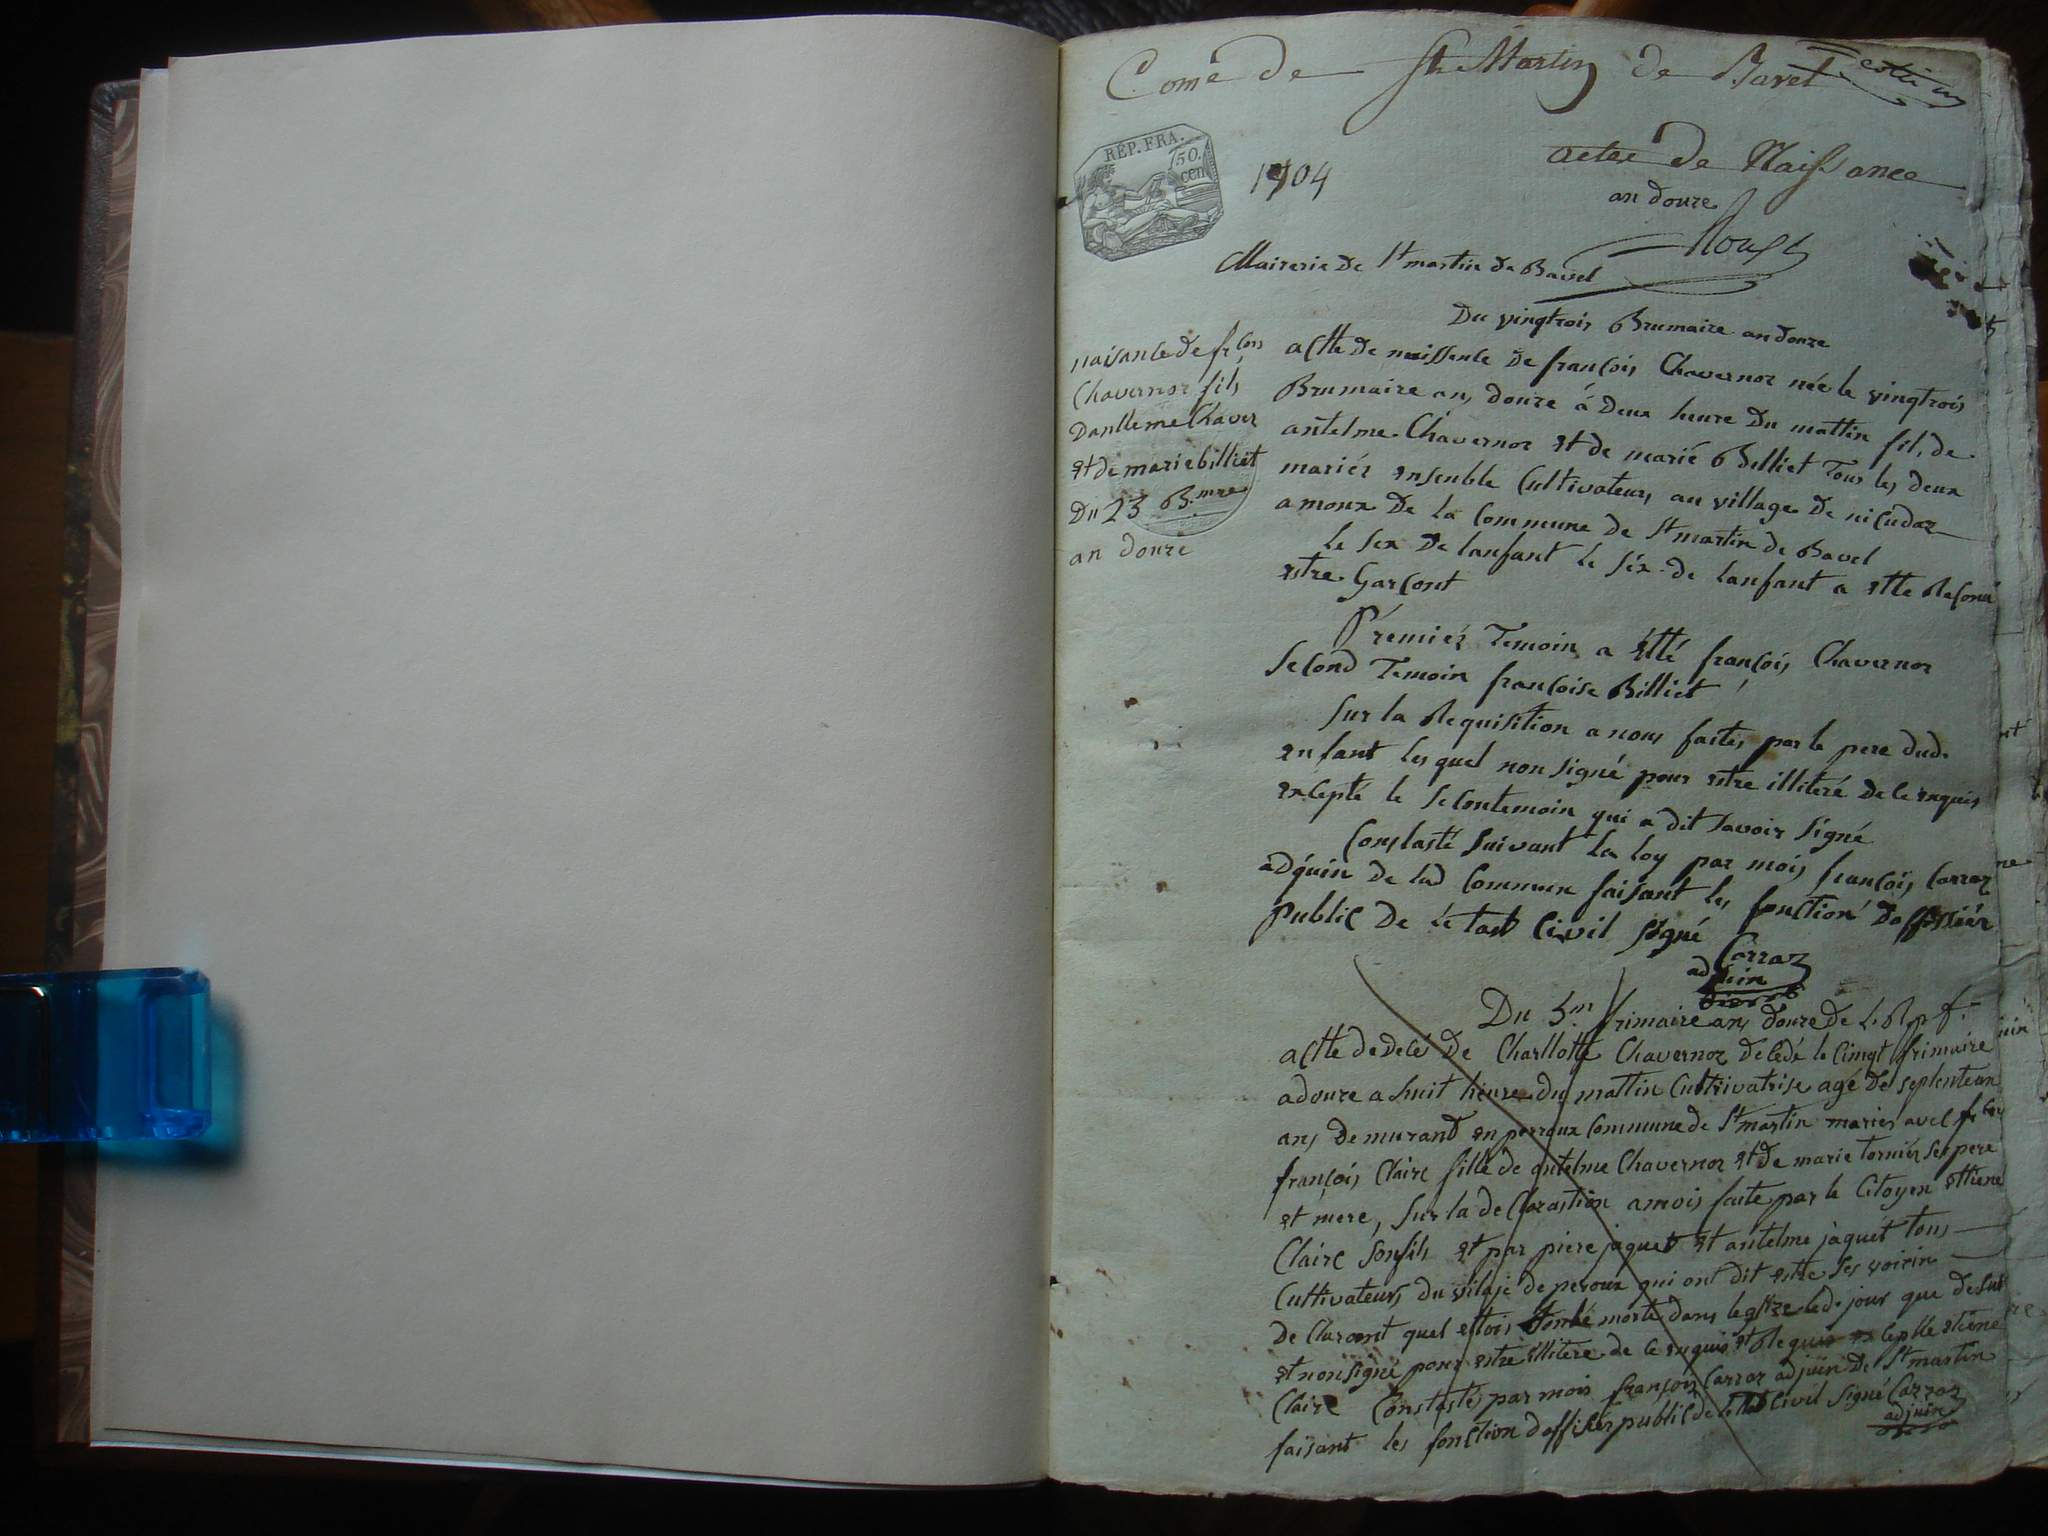 Come de St Martin de Bavel
REP. FRA.
50.
cen
1804
actes de Naissance
an douze
Mairerie de St martin de Bavel
Du vingtrois Brumaire an douze
naisance de frcois
Chavernoz fils
Dantleme Chaver
et de marie billiet
Du 23 B.mre
an douze
actte de naissence de françois Chavernoz née le vingtrois
Brumaire an douze á Deux heure Du mattin fils de
antelme Chavernoz et de marié Billiet Tous les deux
mariéz ensenble Cultivateurs au village De nicudaz
a moux De la Commune de St martin de Bavel
le sex De lanfant le sex de lanfant a ette Reconu
estre Garcont
Premiéz Temoin a étté françois Chavernoz
Second Temoin françoise Billiet
Sur la Requisition a nous faites par le pere dud.
enfant lesquel non signé pour estre illiteré de ce enquis
exlepté le secontemoin qui a dit savoir signé
Constasté suivant la loy par mois françois Carraz
adquin De lad Commun faisant les fonction Dofissiér
public De Letast Civil signé
Carraz
adjuin
Du 5.m frimaire an douze de L. Rp f.
actte de Decé De Charllotte Chavernoz Decedé le Cinqt frimaire
adouze a huit heure du mattin Cultrivatrise agé De septentean
ans Demurand en perroux Commune de St martin mariés avec frcois
françois Claire fille de antelme Chavernoz et De marie torniér ses pere
et mere, sur la de Clarastion amois faite par le Citoyen ettiene
Claire son fils et par piere jaquet et antelme jaquet tous
Cultivateurs du vilaje de peroux qui ont dit estre ses voizin
De Claront quel ettois tonbé morte dans leglize led. jour que desus
et non signé pour estre illitere de ce enquis et Requis exleptte etiene
Claire Constasté par mois françois Carraz adjuin De St martin
faisant les fonction dofficiér public de letast Civil signé Carraz
adjuin